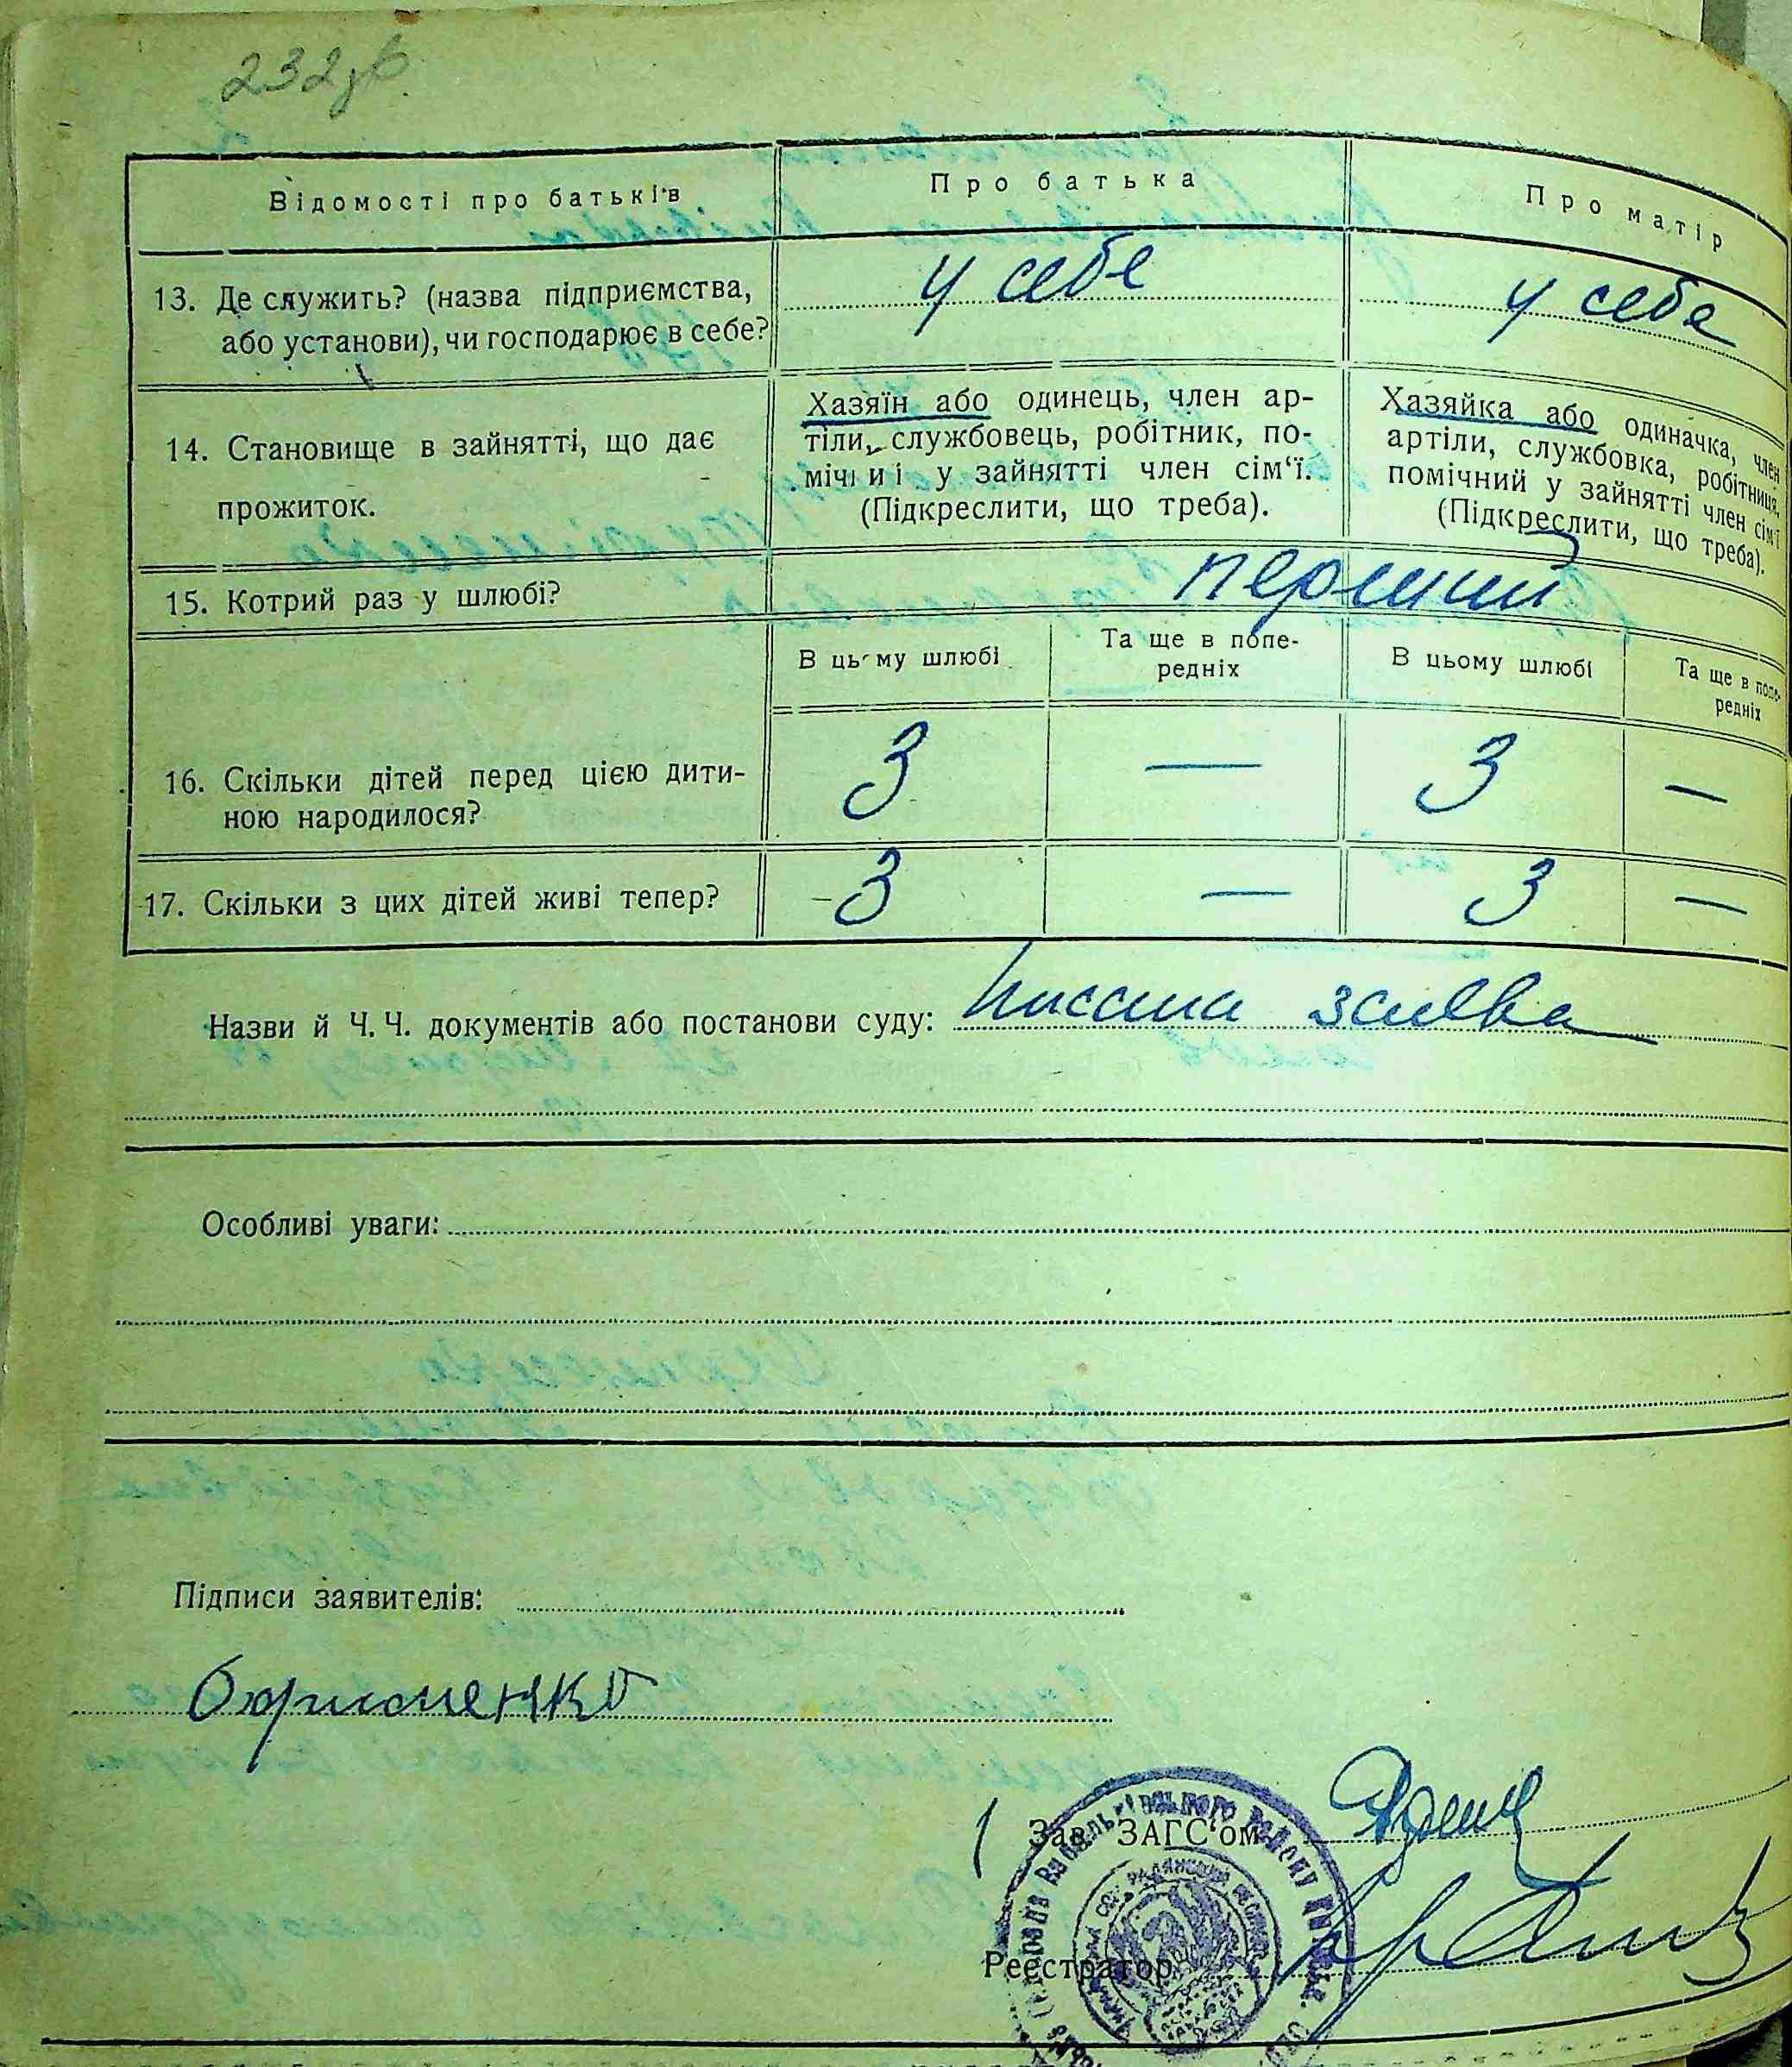 232зв.
Відомості про батьків
Про батька
Про матір
13. Де служить? (назва підприємства,
або установи), чи господарює в себе?
у себе
у себе
14. Становище в зайнятті, що дає
прожиток.
Хазяїн або одинець, член ар-
тіли, службовець, робітник, по-
мічний у зайнятті член сім‘ї.
(Підкреслити, що треба).
Хазяйка або одиначка, член
артіли, службовка, робітниця,
помічний у зайнятті член сім‘ї
(Підкреслити, що треба).
15. Котрий раз у шлюбі?
перший
В цьму шлюбі
Та ще в попе-
редніх
В цьому шлюбі
Та ще в попе-
редніх
16. Скільки дітей перед цією дити-
ною народилося?
3 — 3 —
17. Скільки з цих дітей живі тепер?
3 — 3 —
Назви й Ч. Ч. документів або постанови суду:
Особливі уваги:
Підписи заявителів:
Зав. ЗАГС‘ом
Реєстратор